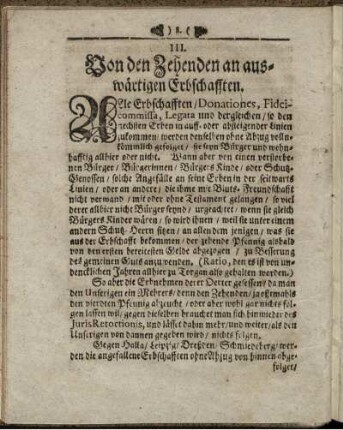 ) 8. (
III.
Von den Zehenden an aus-
wärtigen Erbschafften.
ALle Erbschafften / Donationes, Fidei-
commissa, Legata und dergleichen / so den
rechten Erben in auf- oder absteigender Linien
zukommen / werden denselben ohne Abzug volln-
kömmlich gefolget / sie seyn Bürger und wohn-
hafftig allhier oder nicht. Wann aber von einen verstorbe-
nen Bürger / Bürgerinnen / Bürgers Kinde / oder Schutz-
Genossen / solche Angefälle an seine Erben in der seitwarts
Linien / oder an andere / die ihme mit Bluts-Freundschafft
nicht verwand / mit oder ohne Testament gelangen / so viel
derer allhier nicht Bürger seynd / ungeachtet / wenn sie gleich
Bürgers Kinder wären / so wird ihnen / weil sie unter einem
andern Schutz-Herrn sitzen / an alle dem jenigen / was sie
aus der Erbschafft bekommen / der zehende Pfennig alsbald
von den ersten bereitesten Gelde abgezogen / zu Besserung
des gemeinen Guts anzuwenden. (Ratio, denn es ist von un-
dencklichen Jahren allhier zu Torgau also gehalten worden.)
So aber die Erbnehmen derer Oerter gesessen / da man
den Unserigen ein Mehrers / denn den Zehenden / ja etsmahls
den vierdten Pfennig abzeucht / oder aber wohl gar nichts fol-
gen lassen will / gegen dieselben brauchet man sich hinwieder des
Juris Retorsionis, und lässet dahin mehr / und weiter / als den
Unserigen von dannen gegeben wird / nichts folgen.
Gegen Halla / Leipzig / Dreßden / Schmiedeberg / wer-
den die angefallene Erbschafften ohne Abzug von hinnen abge-
folget /